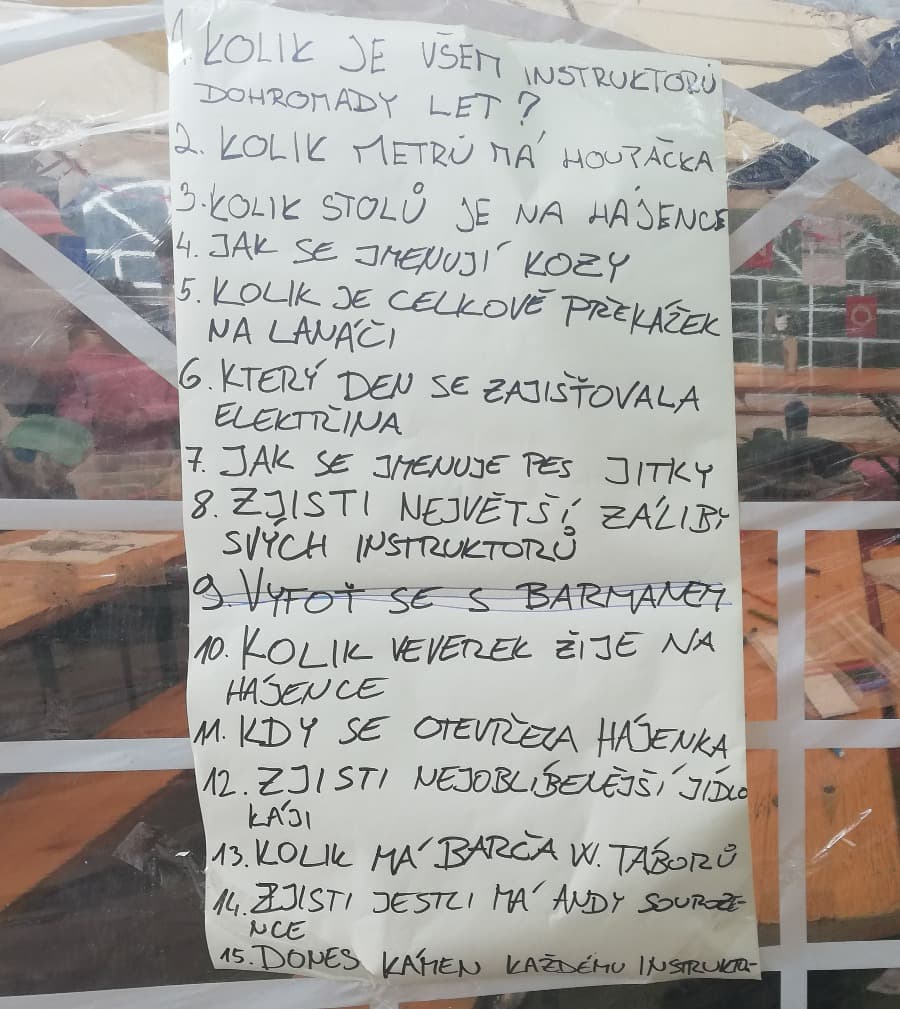 1. KOLIK JE VŠEM INSTRUKTORŮ
DOHROMADY LET?
2. KOLIK METRŮ MÁ HOUPAČKA
3. KOLIK STOLŮ JE NA HÁJENCE
4. JAK SE JMENUJÍ KOZY
5. KOLIK JE CELKOVĚ PŘEKÁŽEK
NA LANÁČI
6. KTERÝ DEN SE ZAJIŠŤOVALA
ELEKTŘINA
7. JAK SE JMENUJE PES JITKY
8. ZJISTI NEJVĚTŠÍ ZÁLIBY
SVÝCH INSTRUKTORŮ
9. VYFOŤ SE S BARMANEM
10. KOLIK VEVEREK ŽIJE NA
HÁJENCE
11. KDY SE OTEVŘELA HÁJENKA
12. ZJISTI NEJOBLÍBENĚJŠÍ JÍDLO
KÁJI
13. KOLIK MÁ BARČA W. TÁBORŮ
14. ZJISTI JESTLI MÁ ANDY SOUROZE-
NCE
15. DONES KÁMEN KAŽDÉMU INSTRUKTO-